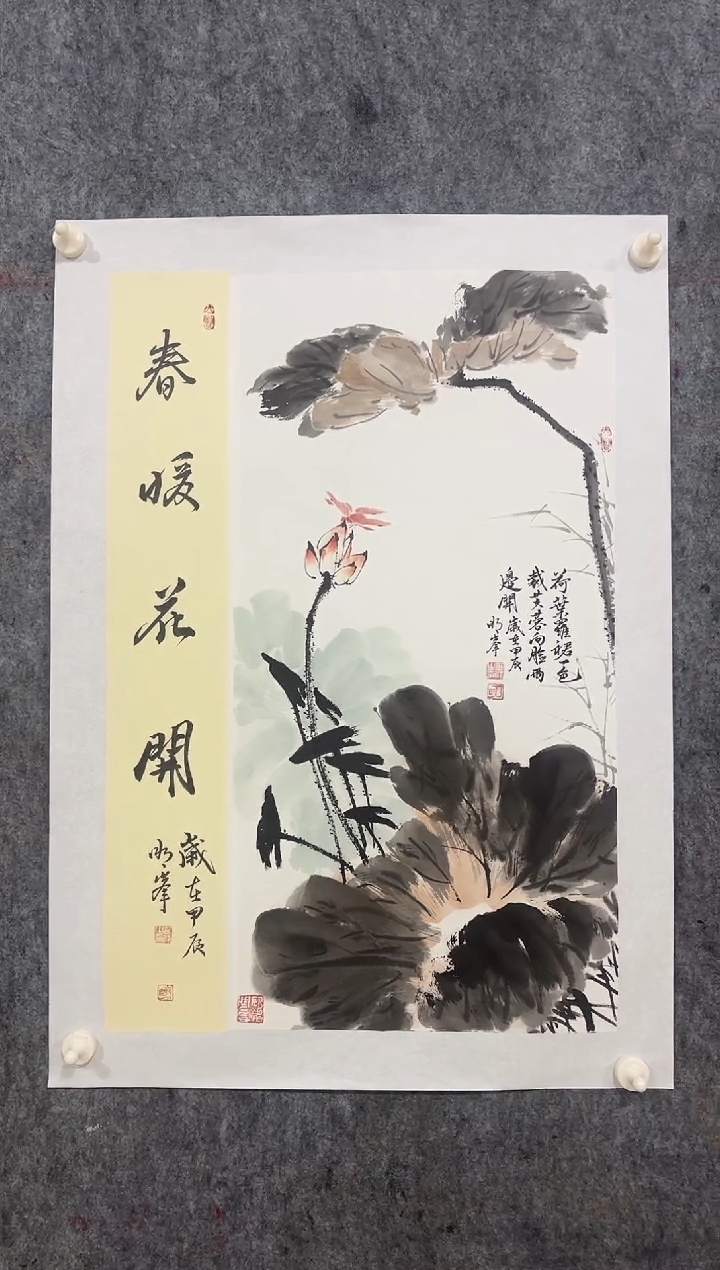 春暖花開
歲在甲辰
明峯
荷葉羅裙一色
裁芙蓉向脸兩
邊開歲在甲辰
明峯